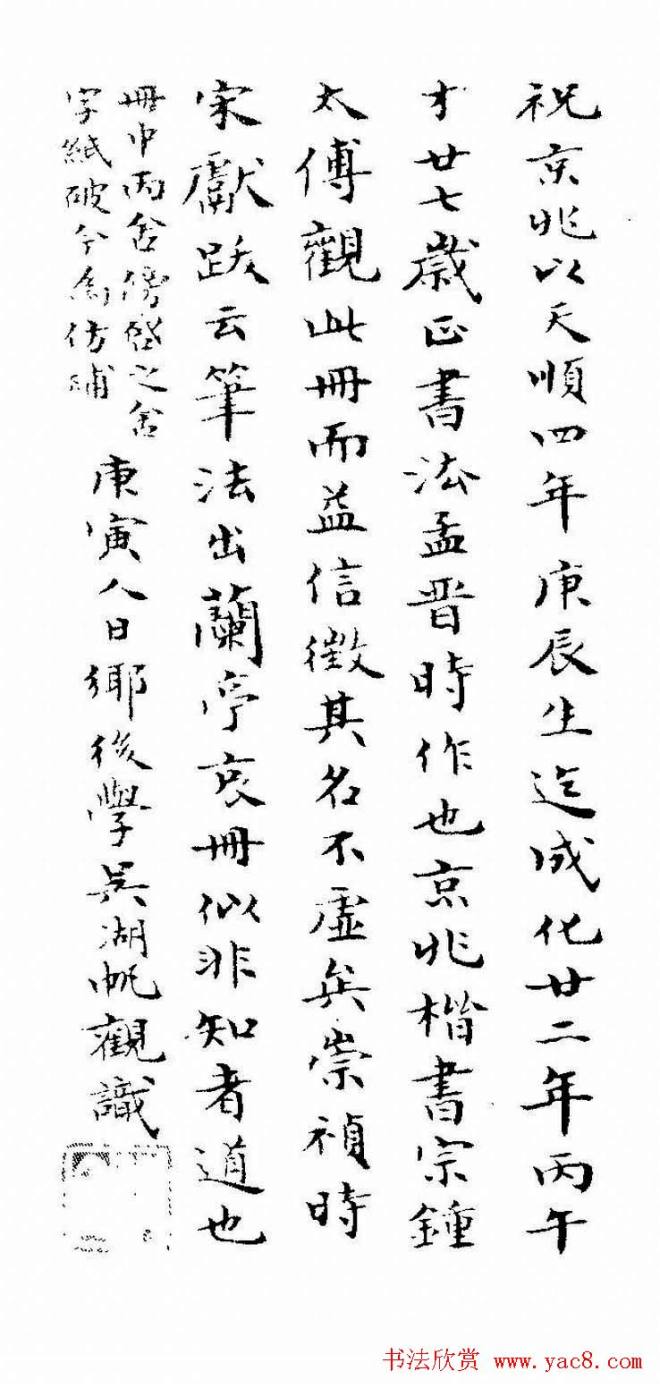 祝京兆以天順四年庚辰生迄成化廿二年丙午
才廿七歲正書法孟晉時作也京兆楷書宗鍾
太傅觀此冊而益信徵其名不虛矣崇禎時
宋獻跋云筆法出蘭亭哀冊似非知者道也
冊中丙舍傍啓之舍
字紙破今為仿補
庚寅人日鄉後學吳湖帆觀識
书法欣赏 www.yac8.com